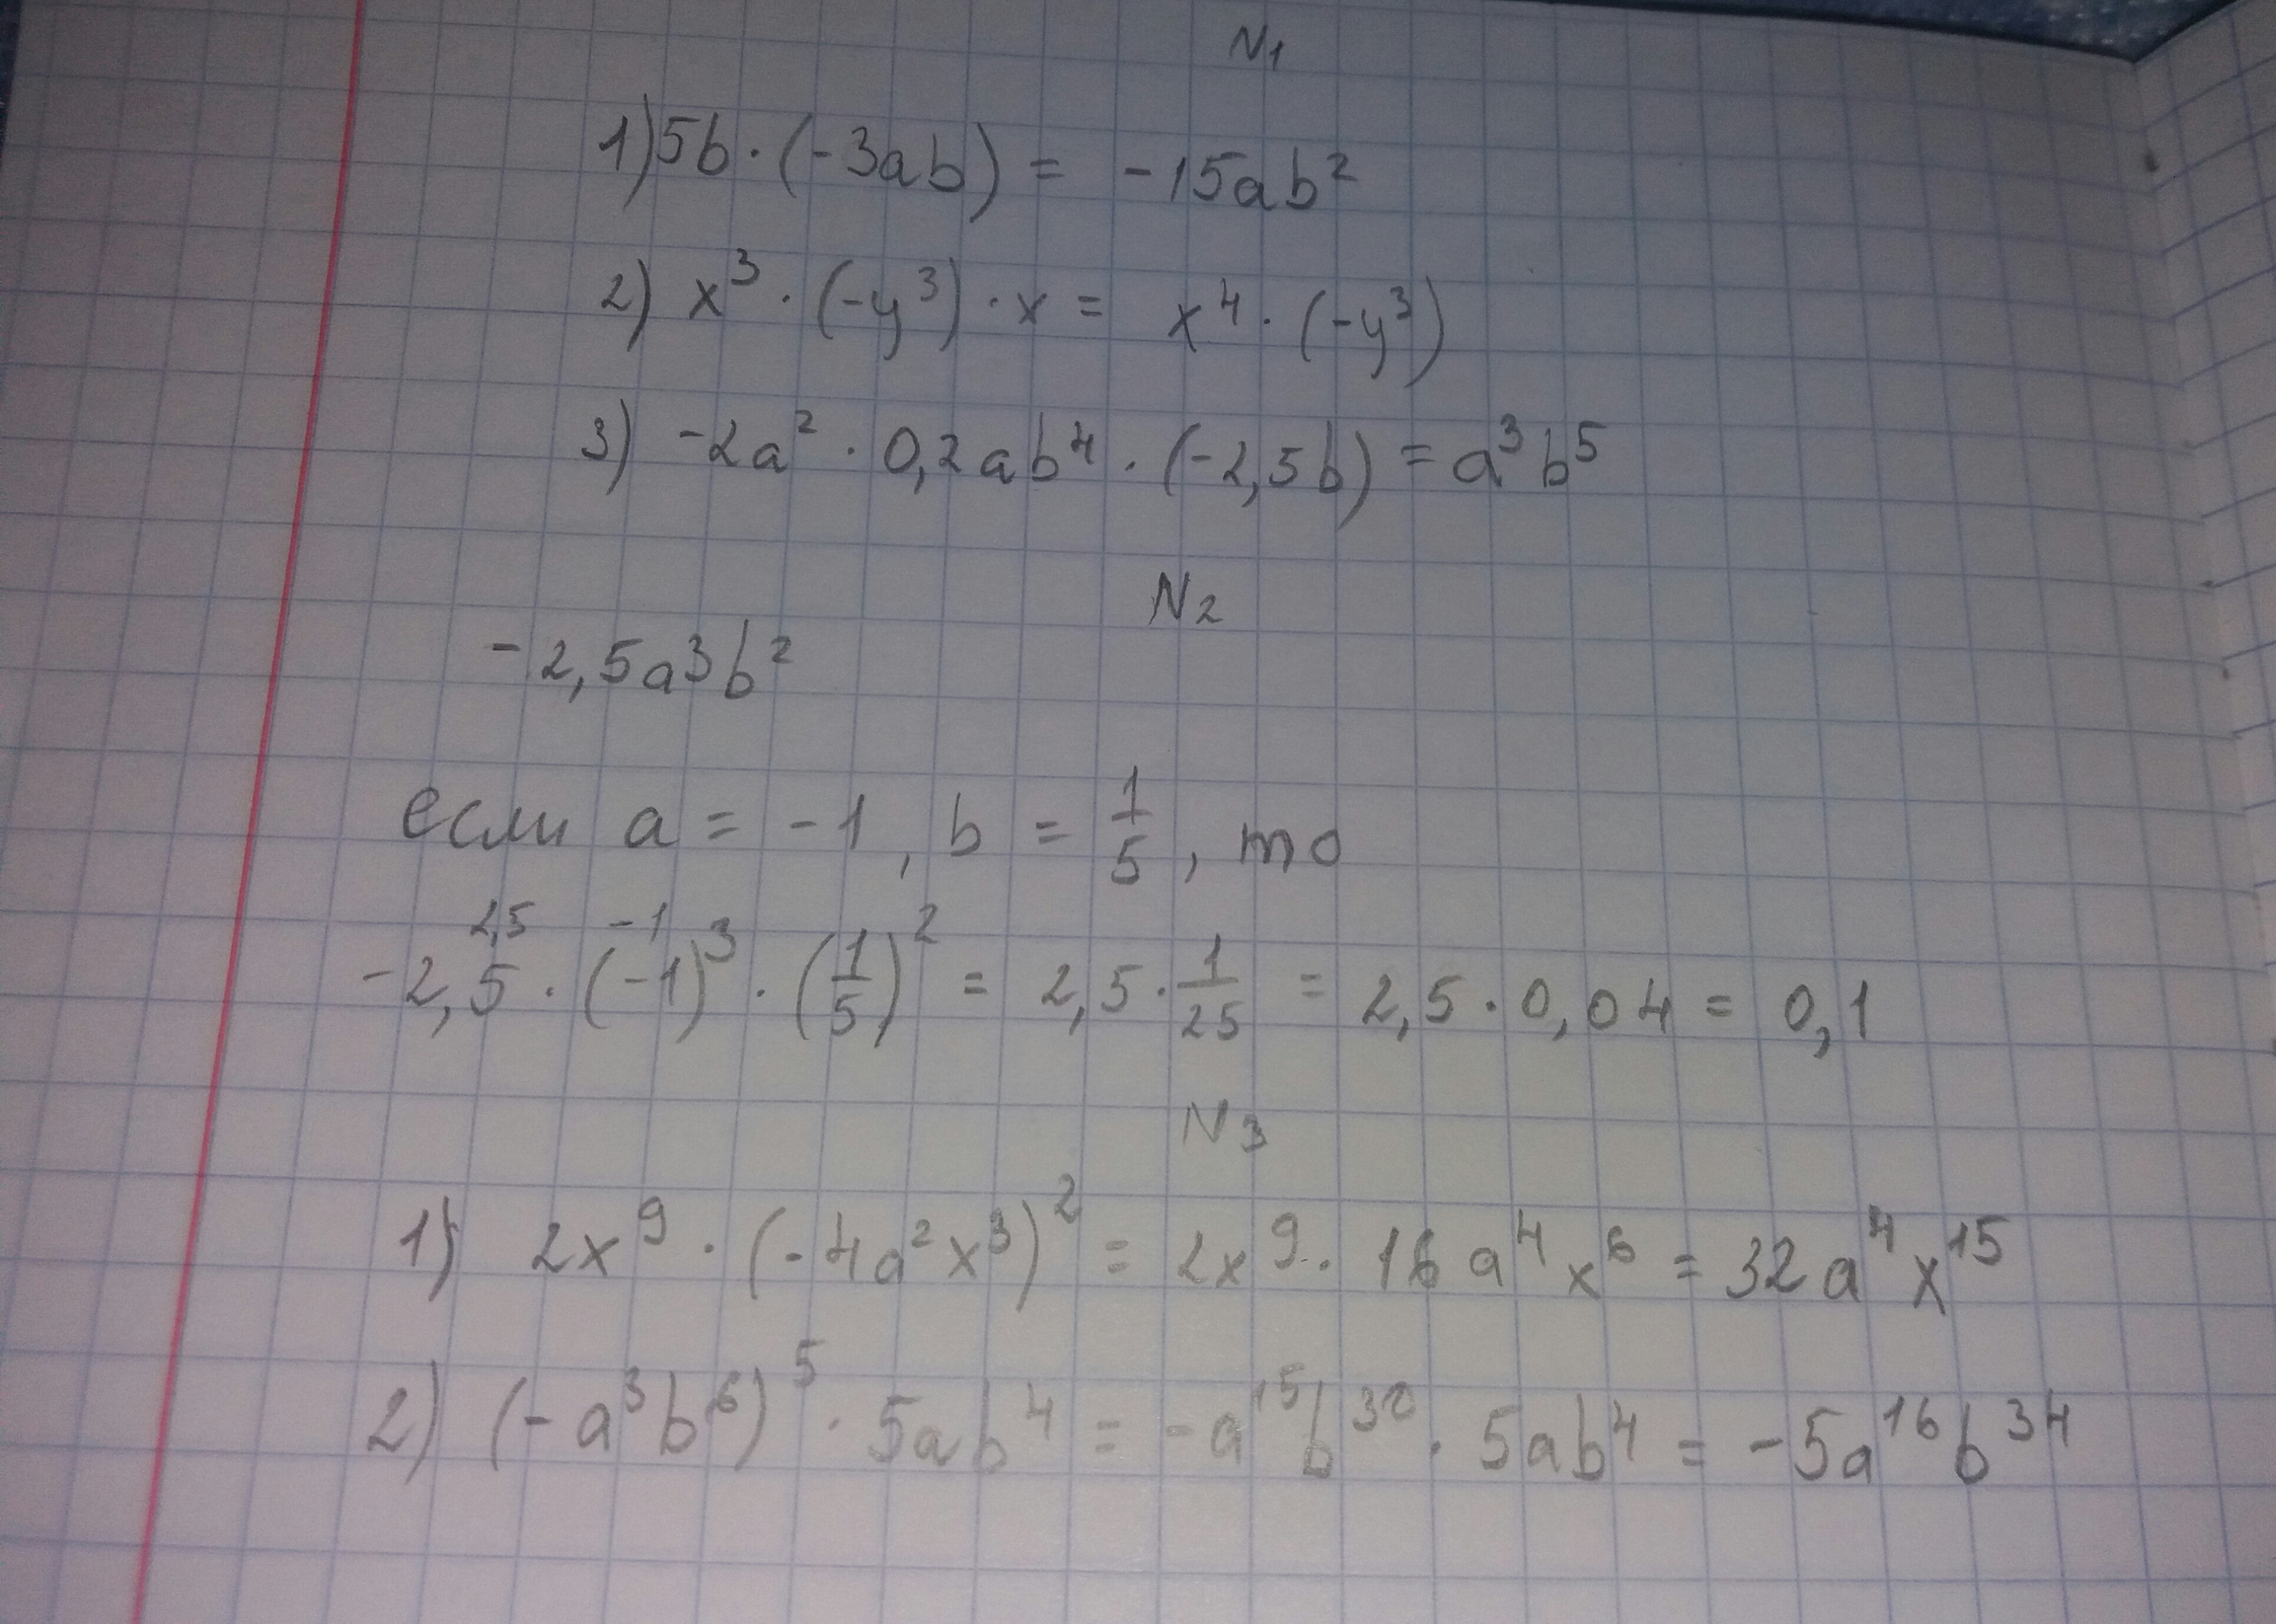 N1
1) 5b · (-3ab) = -15ab²
2) x³ · (-y³) · x = x⁴ · (-y³)
3) -2a² · 0,2ab⁴ · (-2,5b) = a³b⁵
N2
-2,5a³b²
если a = -1, b = 1/5, то
2,5 -1
-2,5 · (-1)³ · (1/5)² = 2,5 · 1/25 = 2,5 · 0,04 = 0,1
N3
1) 2x⁹ · (-4a²x³)² = 2x⁹ · 16a⁴x⁶ = 32a⁴x¹⁵
2) (-a³b⁶)⁵ · 5ab⁴ = -a¹⁵b³⁰ · 5ab⁴ = -5a¹⁶b³⁴